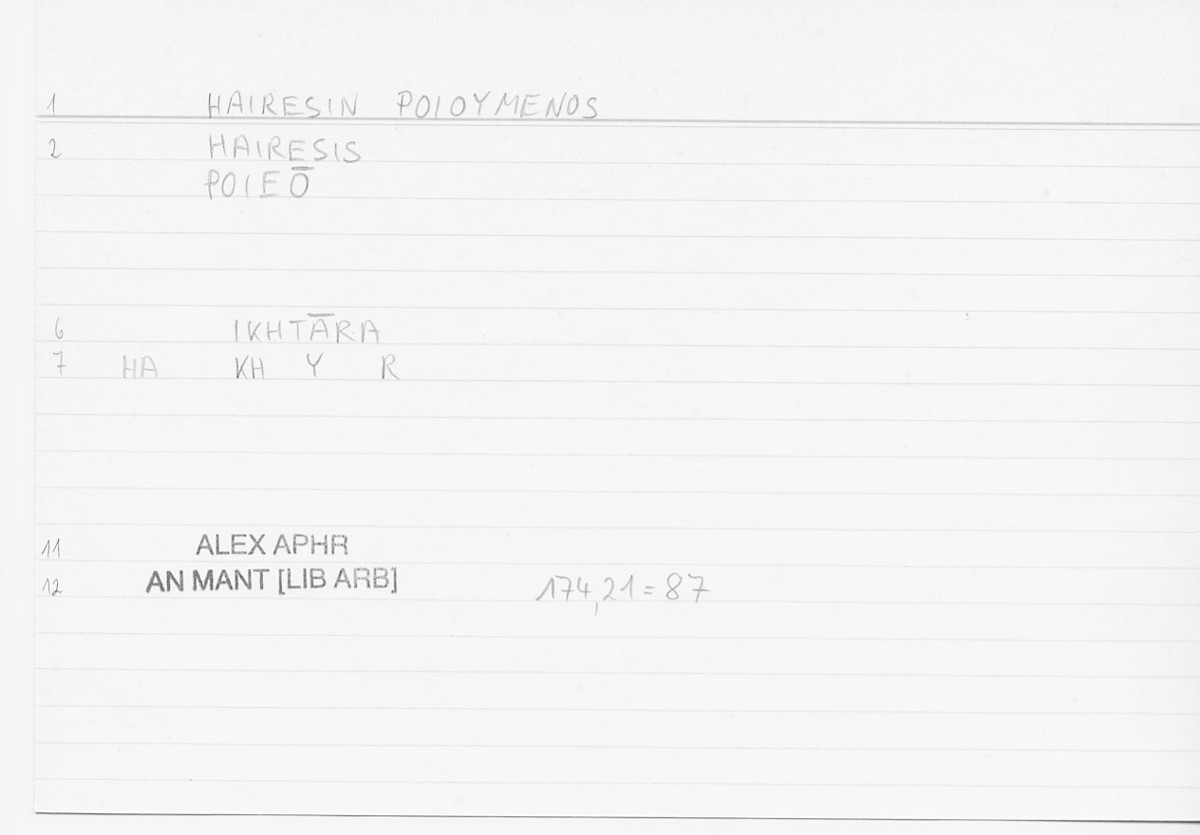 1 HAIRESIN POIOYMENOS
2 HAIRESIS
POIEŌ
6 IKHTĀRA
7 HA KH Y R
11 ALEX APHR
12 AN MANT [LIB ARB] 174,21=87